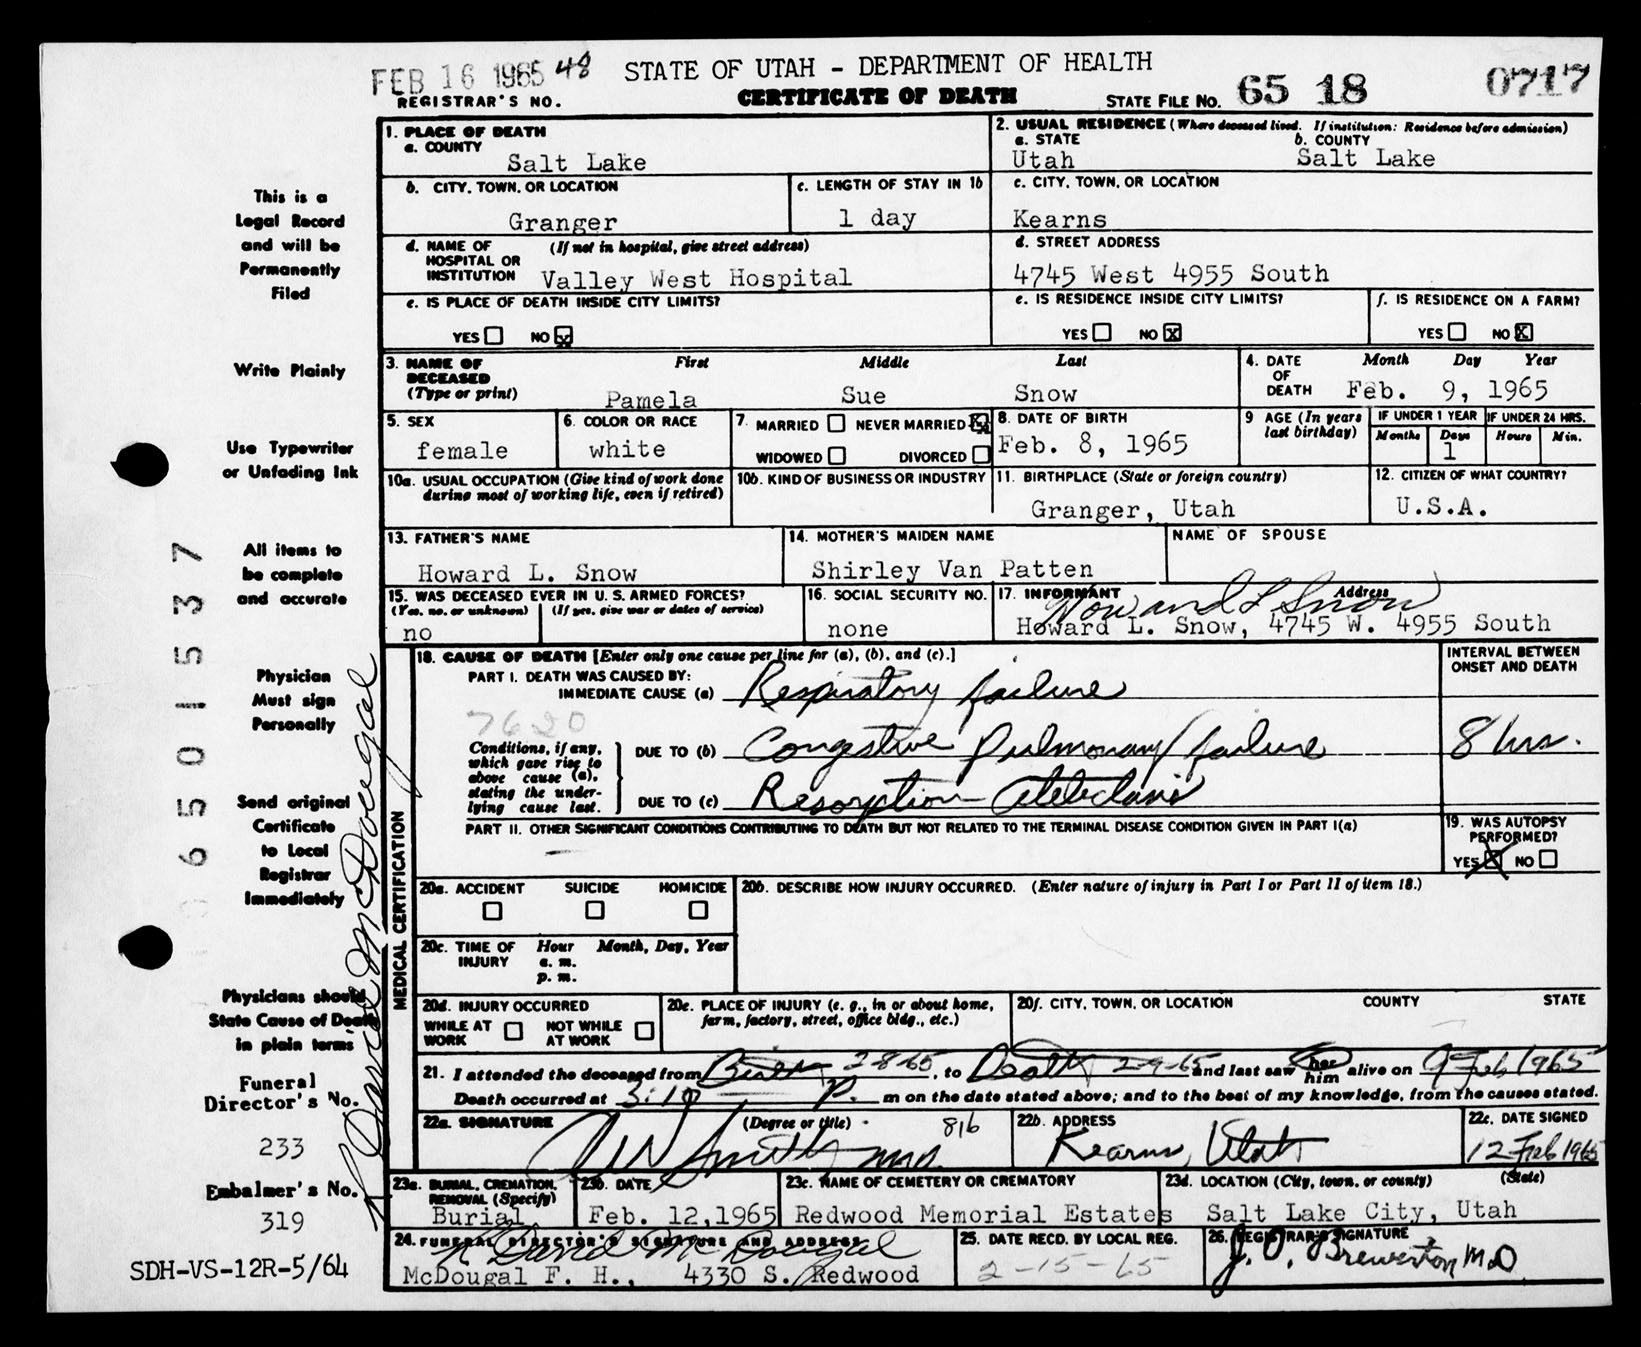 FEB 16 1965 48 STATE OF UTAH - DEPARTMENT OF HEALTH
REGISTRAR'S NO. CERTIFICATE OF DEATH STATE FILE NO. 65 18 0717
1. PLACE OF DEATH
a. COUNTY
Salt Lake
2. USUAL RESIDENCE (Where deceased lived. If institution: Residence before admission)
a. STATE b. COUNTY
Utah Salt Lake
b. CITY, TOWN, OR LOCATION
Granger
c. LENGTH OF STAY IN 1b
1 day
c. CITY, TOWN, OR LOCATION
Kearns
d. NAME OF HOSPITAL OR INSTITUTION (If not in hospital, give street address)
Valley West Hospital
d. STREET ADDRESS
4745 West 4955 South
e. IS PLACE OF DEATH INSIDE CITY LIMITS?
YES NO X
e. IS RESIDENCE INSIDE CITY LIMITS?
YES NO X
f. IS RESIDENCE ON A FARM?
YES NO X
3. NAME OF DECEASED (Type or print) First Middle Last
Pamela Sue Snow
4. DATE OF DEATH Month Day Year
Feb. 9, 1965
5. SEX
female
6. COLOR OR RACE
white
7. MARRIED NEVER MARRIED X
WIDOWED DIVORCED
8. DATE OF BIRTH
Feb. 8, 1965
9 AGE (In years last birthday)
IF UNDER 1 YEAR IF UNDER 24 HRS.
Months Days Hours Min.
1
10a. USUAL OCCUPATION (Give kind of work done during most of working life, even if retired)
10b. KIND OF BUSINESS OR INDUSTRY
11. BIRTHPLACE (State or foreign country)
Granger, Utah
12. CITIZEN OF WHAT COUNTRY?
U.S.A.
13. FATHER'S NAME
Howard L. Snow
14. MOTHER'S MAIDEN NAME
Shirley Van Patten
NAME OF SPOUSE
15. WAS DECEASED EVER IN U. S. ARMED FORCES?
(Yes, no, or unknown) (If yes, give war or dates of service)
no
16. SOCIAL SECURITY NO.
none
17. INFORMANT Address
Howard L Snow
Howard L. Snow, 4745 W. 4955 South
MEDICAL CERTIFICATION
18. CAUSE OF DEATH [Enter only one cause per line for (a), (b), and (c).]
INTERVAL BETWEEN ONSET AND DEATH
PART I. DEATH WAS CAUSED BY:
IMMEDIATE CAUSE (a) Respiratory failure
7620
Conditions, if any, which gave rise to above cause (a), stating the underlying cause last.
DUE TO (b) Congestive Pulmonary failure 8 hrs.
DUE TO (c) Resorption Atelectasis
PART II. OTHER SIGNIFICANT CONDITIONS CONTRIBUTING TO DEATH BUT NOT RELATED TO THE TERMINAL DISEASE CONDITION GIVEN IN PART I(a)
19. WAS AUTOPSY PERFORMED?
YES X NO
20a. ACCIDENT SUICIDE HOMICIDE
20b. DESCRIBE HOW INJURY OCCURRED. (Enter nature of injury in Part I or Part II of item 18.)
20c. TIME OF INJURY Hour Month, Day, Year
a. m.
p. m.
20d. INJURY OCCURRED
WHILE AT WORK NOT WHILE AT WORK
20e. PLACE OF INJURY (e. g., in or about home, farm, factory, street, office bldg., etc.)
20f. CITY, TOWN, OR LOCATION COUNTY STATE
21. I attended the deceased from Birth 2-8-65, to Death 2-9-65 and last saw her him alive on 9 Feb 1965
Death occurred at 3:10 P. m on the date stated above; and to the best of my knowledge, from the causes stated.
22a. SIGNATURE (Degree or title) 816
Smith MD.
22b. ADDRESS
Kearns, Utah
22c. DATE SIGNED
12 Feb 1965
23a. BURIAL, CREMATION, REMOVAL (Specify)
Burial
23b. DATE
Feb. 12, 1965
23c. NAME OF CEMETERY OR CREMATORY
Redwood Memorial Estates
23d. LOCATION (City, town, or county) (State)
Salt Lake City, Utah
24. FUNERAL DIRECTOR'S SIGNATURE AND ADDRESS
David McDougal
McDougal F. H., 4330 S. Redwood
25. DATE RECD. BY LOCAL REG.
2-15-65
26. REGISTRAR'S SIGNATURE
J. O. Brewerton M.D
This is a
Legal Record
and will be
Permanently
Filed
Write Plainly
Use Typewriter
or Unfading Ink
All items to
be complete
and accurate
Physician
Must sign
Personally
Send original
Certificate
to Local
Registrar
Immediately
Physicians should
State Cause of Death
in plain terms
Funeral
Director's No.
233
Embalmer's No.
319
SDH-VS-12R-5/64
David McDougal